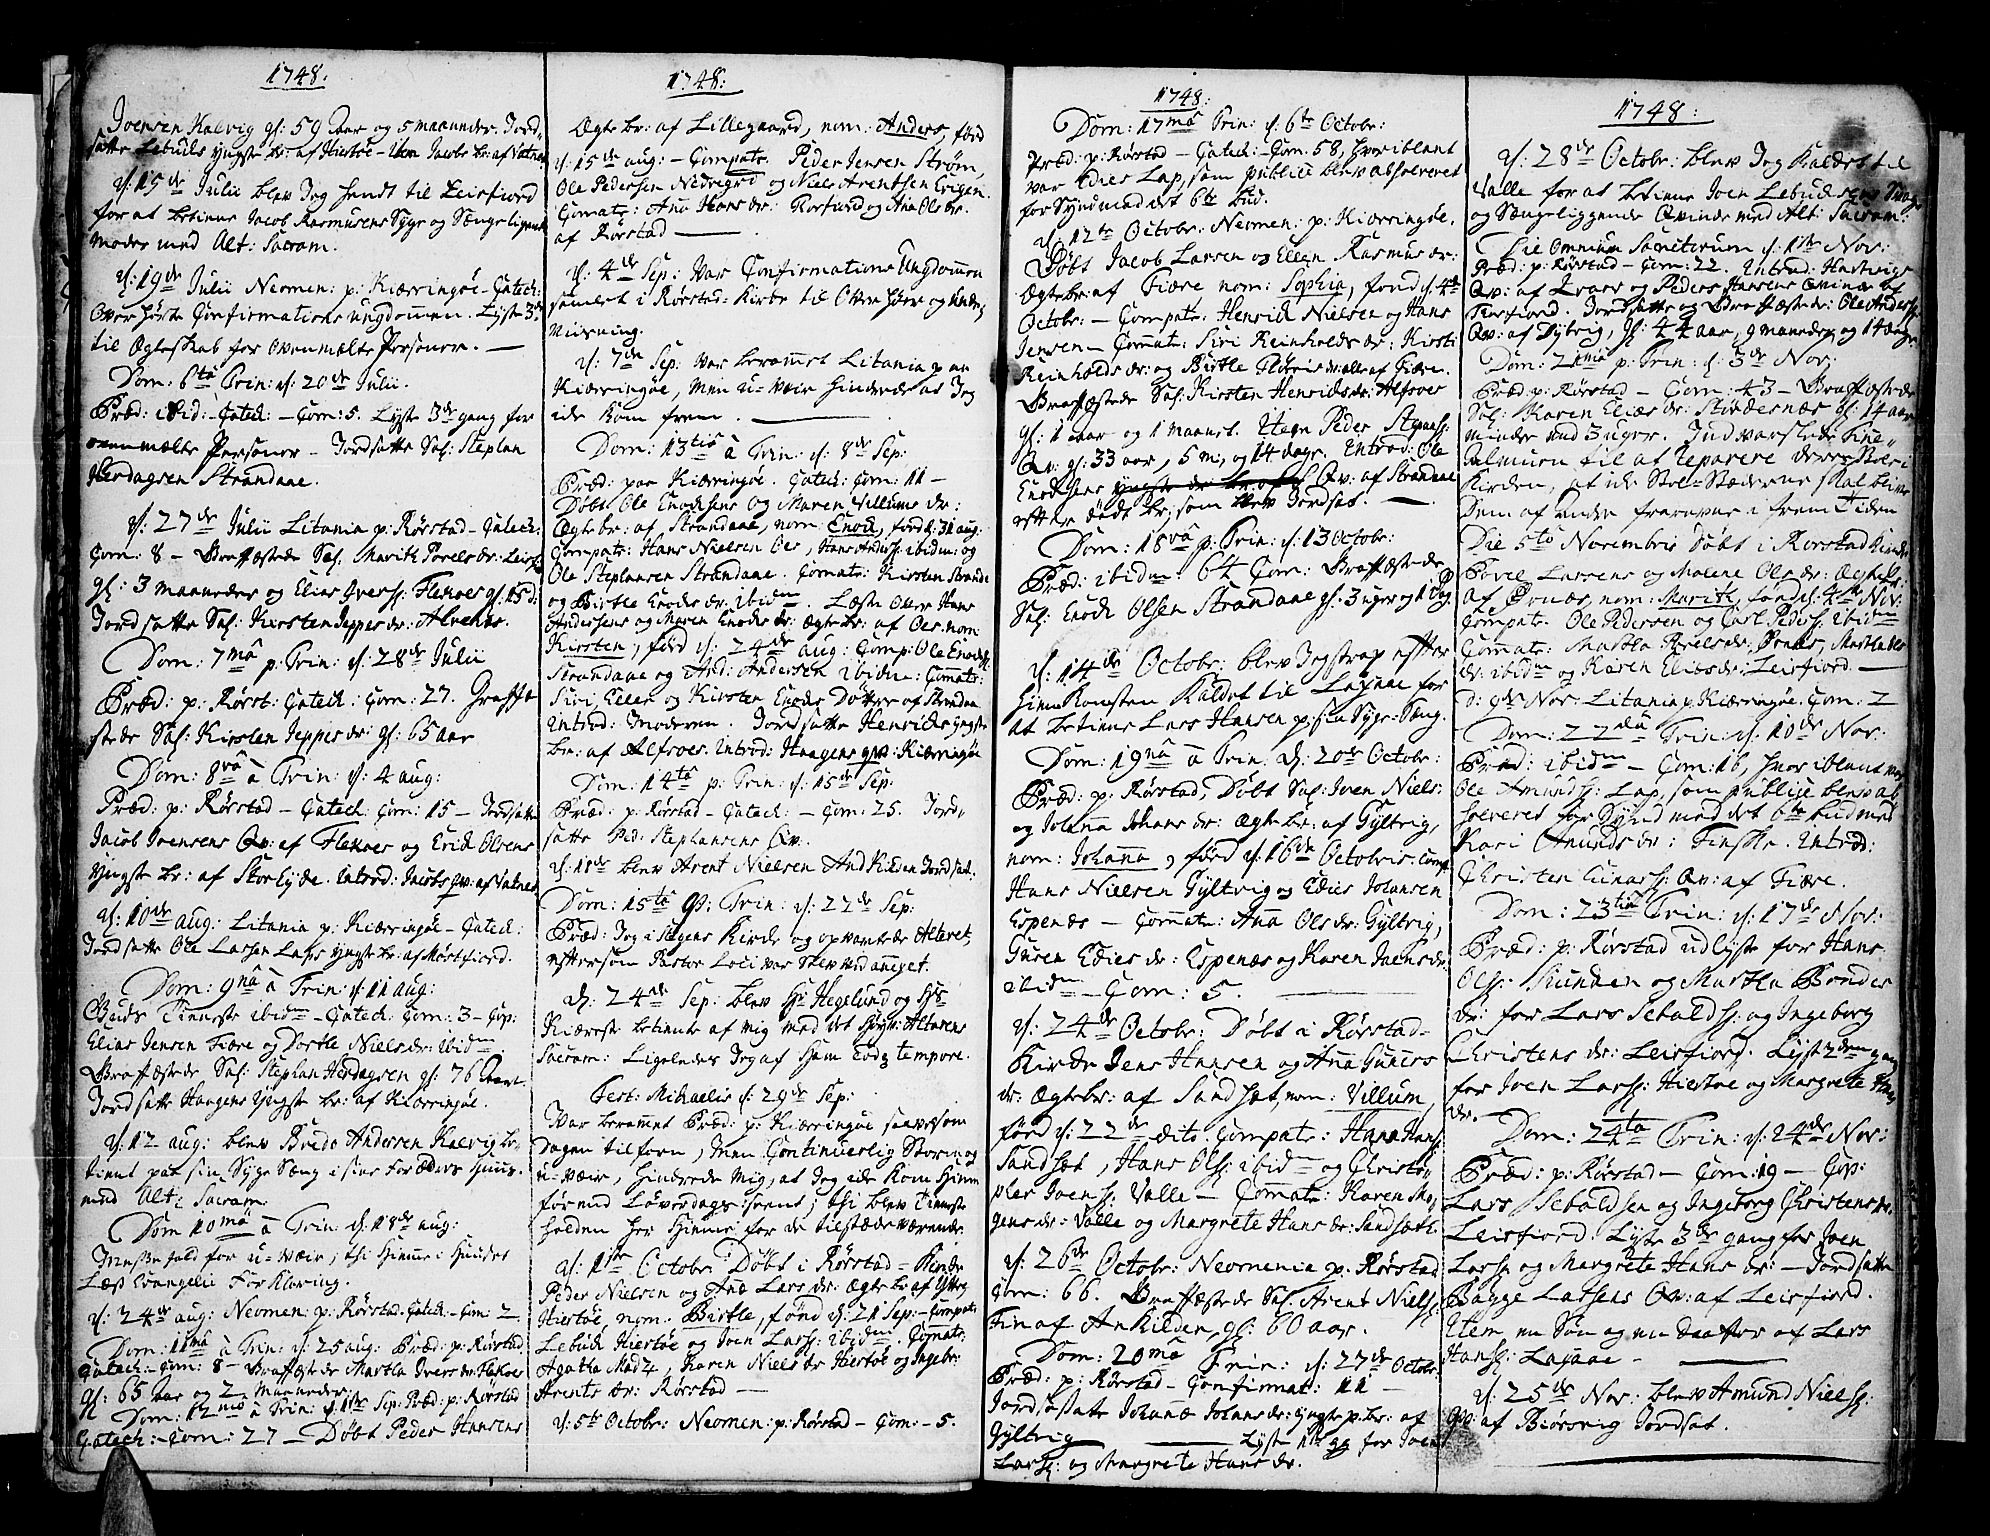 1748.
Joensen Kalvig gl: 59 aar og 5 maaneder. Jord-
satte Lebuds yngste br: af Hiertøe - Item Jacobs br: af Vatnes
d: 15de Julii blev Jeg hendt til Leirfiord
for at betiene Jacob Rasmusens Syge og Sængeliggende
Moder med Alt: Sacram.
d: 19de Julii Neomen: p: Kierringøe - Catech:
Overhørte Confirmations ungdommen. Lyste 3de
til Ægteskab for ovenmælte Personer. —
Dom: 6ta Trin: d: 20de Julii.
Præd: ibid: - Catech: - Com: 5. Lyste 3de gang for
ovenmælte Personer - Jordsatte Sal: Stephan
Herdagsen Strandaae.
d: 27de Julii Litania p: Rørstad - Catech:
Com: 8 - Graffæstede Sal: Marith Povelsdr: Leirf:
gl: 3 maaneder og Elias Iverss: Flekoes gl: 15 d:
Jordsatte Sal: Kirsten Jeppesdr: Alvenes.
Dom: 7ma p: Trin: d: 28de Julii
Præd: p: Rørst: Catech: Com: 27. Graffæ-
stede Sal: Kirsten Jeppesdr: gl: 65 aar
Dom: 8va à Trin: d: 4 aug:
Præd: p: Rørstad - Catech: Com: 15 - Jordsatte
Jacob Joensens Qv: af Flekoes og Erick Olsens
yngste br: af Storeyde. Introd: Jacobs qv: af Vatnes
d: 10de aug: Litania p: Kierringøe - Catech:
Jordsatte Ole Larsen Laps yngste br: af Mørsfiord.
Dom: 9na à Trin: d: 11 aug:
Guds Tieneste ibidm - Catech: Com: 3 - Cop:
Elias Jensen Fiære og Dortle Nielsdr: ibidm.
Graffæstede Sal: Stephan Herdagsen gl: 76 aar.
Jordsatte Haagens yngste br: af Kierringøe.
d: 12 aug: blev Bredo Andersen Kalvig be-
tient paa sin Syge Sæng i sine Forældres Huus
med Alt: Sacram.
Dom 10ma à Trin: d: 18de aug:
Messefald for u-veir; thi hiemme i Huuset
Læst Evangelii Forklaring.
d: 24de aug: Neomen: p: Rørstad - Catech - Com: 2
Dom: 11ma à Trin: d: 25 aug: Præd: p: Rørstad
Catech: - Com: 8 - Graffæstede Martha Iversdr: Flekoes
gl: 65 aar og 2 maaneder
Dom: 12ma à Trin: d: 1ste Sep: Præd: p: Rørstad
Catech: - Com: 27 - Døbt Peder Hansens
1748.
Ægte br: af Lillegaard, nom: Anders, fød
d: 15de aug: - Compatr: Peder Jensen Strøm,
Ole Pedersen Nedregrd og Niels Arentsen Evigen
Comatr: Ana Hansdr: Korsund og Ana Olsdr.
af Rørstad —
d: 4de Sep: Var Confirmations Ungdommen
samlet i Rørstad-Kirke til Overhør og under-
viisning.
d: 7de Sep: var berammet Litania paa
Kierringøe, men u-veir hindrede at Jeg
icke kom frem. —
Dom: 13tia à Trin: d: 8de Sep:
Præd: paa Kierringøe. Catech: Com: 11 -
Døbt Ole Enochsens og Maren Villumsdr:
Ægtebr: af Strandaae, nom: Enoch, fød d: 31 aug:
Compatr: Hans Nielsen Oes, Hans Anderss: ibidm: og
Ole Stephansen Strandaae. Comatr: Kirsten Strandaae
og Birthe Enochsdr: ibidm. Læste over Hans
Andersens og Maren Enochsdr: Ægtebr: af Oes nom:
Kirsten, fød d: 24de aug: Comp: Ole Enochs:
Strandaae og And: Andersen ibidm: Comatr:
Siri, Ellen og Kirsten Enochs Døttre af Strandaae
Introd: Moderen. Jordsatte Henrichs yngste
br: af Alfroes. Introd: Haagens qv: Kierringøe
Dom: 14ta p: Trin: d: 15de Sep:
Præd: p: Rørstad - Catech: - Com: 25. Jord-
satte Ped: Stephansens Qv.
d: 18de blev Arent Nielsen Ankilden Jordsat.
Dom: 15ta p: Trin: d: 22de Sep:
Præd: Jeg i Stegens Kirke og opvartede Alteret,
eftersom Pastor Loci var Slev ved anviget.
d: 24de Sep: blev Hr Hegelund og Hs
Kiæreste betiente af mig med det Høyv: Altarens
Sacram: Ligeledes Jeg af Ham Eodem tempore.
Fest: Michaelis d: 29de Sep:
Var berammet Præd: p: Kierringøe saavelsom
Dagen tilforn, men Continuerlig Storm og
u-veir, hindrede mig, at Jeg icke kom hiem
førend Løverdags aftent; thi blev Tieneste
holden her hiemme for de tilstædeværende.
d: 1ste October Døbt i Rørstad-Kircke
Peder Nielsen og Ane Larsdr: Ægtebr: af Yttre
Hiertøe, nom: Birthe, fød d: 21 Sep: - Compatr:
Lebuch Hiertøe og Joen Larss: ibidm. Comatr:
Agatha Madtz, Karen Nielsdr Hiertøe og Ingebr:
Arentsdr: Rørstad —
d: 5te Octobr: Neomen: p: Rørstad - Com: - 5.
1748.
Dom: 17ma Trin: d: 6te Octobr:
Præd: p: Rørstad - Catech: - Com: 58, hvoriblant
var Edies Lap, som publice blev absolveret
for Synd mod det 6te bud.
d: 12te Octobr: Neomen: p: Kierringøe.
Døbt Jacob Larsen og Ellen Rasmusdr:
Ægtebr: af Fiære nom: Sophia, fød d: 4de
Octobr: - Compatr: Henrich Nielsen og Hans
Jensen - Comatr: Siri Reinholdsdr: Kirsti
Reinholdsdr: og Birthe Flørisvælle af Fiære.
Graffæstede Sal: Kirsten Henrichsdr: Alfroes
gl: 1 aar og 1 maanet. Item Peder Stephanss:
Qv: gl: 33 aar, 5 m: og 14 dage. Introd: Ole
Enochsens Qv: af Strandaae
efter dødt br; som blev Jordsat. —
Dom: 18va p: Trin: d: 13 Octobr:
Præd: ibidm: 64 Com: Graffæstede
Sal: Enoch Olsen Strandaae gl: 3 uger og 1 Dag.
d: 14de Octobr: blev Jeg strax efter
hiemkomsten kaldet til Løpaae for
at betiene Lars Hansen p: sin Syge-Sæng.
Dom: 19na à Trin. d: 20de Octobr:
Præd: p: Rørstad, Døbt Sal: Iven Niels:
og Johanna Johansdr: Ægtebr: af Gyltvig,
nom: Johanna, fød d: 16de Octobris comp:
Hans Nielsen Gyltvig og Edies Johansen
Espenæs - Comatr: Ana Olsdr: Gyltvig,
Guren Ediesdr: Espenæs og Karen Joensdr:
ibidm - Com: 5. —
d: 24de Octobr: Døbt i Rørstad-
Kirke Jens Hansen og Ana Gunners
dr: Ægtebr: af Sandset, nom: Villum,
fød d: 22de dito. Compatr: Hans Hanss:
Sandset, Hans Olss: ibidm og Christo-
pher Joenss: Valle - Comatr: Karen Mo-
gensdr: Valle og Margrete Hansdr: Sandseth.
d: 26de Octobr: Neomenia p: Rørstad
Com: 66. Graffæstede Sal: Arent Nielss:
Fin af Ankilden, gl: 60 aar.
Dom: 20ma Trin: d: 27de Octobr
Præd: p: Rørstad - Confirmat: 11 -
Jordsatte Johanne Johansdr: yngste p: br: af
Gyltvig — Lyste 1te g for Joen
Larss: og Margrete Hansdr.
1748.
d: 28de Octobr: blev Jeg kaldet til
Valle for at betiene Joen Lebudsens Svage
og Sængeliggende Qvinde med Alt: Sacram.
Die Omnium Sanctorum d: 1ste Nov:
Præd: p: Rørstad - Com: 22. Introd: Hartvigs
Qv: af Evars og Peders Hansens Qvinde af
Leirfiord. Jordsatte og Graffæstede: Ole Anderss:
Qv: af Dybvig, gl: 44 aar, 9 maaneder og 14 dage
Dom: 21ma p: Trin: d: 3de Nov:
Præd: p: Rørstad - Com: 43 - Graffæstede
Sal: Karen Eliasdr: Størdernæs gl: 14 aar
minder end 3 uger. Indvarslede Tine-
Almuen til at reparere deres Stoele i
Kirken, at icke Stoel-Stæderne skal blive
Dem af Andre frarøvne i frem Tiden
Die 5to Novembris Døbt i Rørstad Kirke
Povel Larsens og Malene Olsdr: Ægtebr:
af Ørnæs, nom: Marith, fød d: 4de Nov:
Compatr: Ole Pedersen og Carl Pederss: ibidm
Comatr: Martha Nielsdr: Ørnæs, Martha Lars
dr: ibidm og Karen Eliasdr: Leirfiord. —
d: 9de Nov: Litania p: Kierringøe. Com: 2
Dom: 22da Trin: d: 10de Nov:
Præd: ibidm - Com: 16, hvoriblant var
Ole Amundss: Lap, som publice blev ab-
solveret for Synd mod det 6te bud med
Kari Amundsdr: Finske. Introd:
Christen Einarss: Qv: af Fiære.
Dom: 23tia Trin: d: 17de Nov:
Præd: p: Rørstad udlyste for Hans
Olss: Skunden og Martha Bendes
dr: for Lars Sebaldss: og Ingeborg
Christensdr: Leirfiord. Lyst 2den gang
for Joen Larss: Hiertøe og Margrete Hans
dr.
Dom: 24ta Trin: d: 24de Nov:
Præd: p: Rørstad - Com: 19 - Cop:
Lars Sebaldsen og Ingeborg Christensdr.
Leirfiord. Lyste 3de gang for Joen
Larss: og Margrete Hansdr: - Jordsatte
Bagge Larsens Qv: af Leirfiord.
Item en Søn og en Daatter af Lars
Hanss: Løpaae - —
d: 25de Nov: blev Amund Nielss:
Qv: af Biørsvig Jordsat.